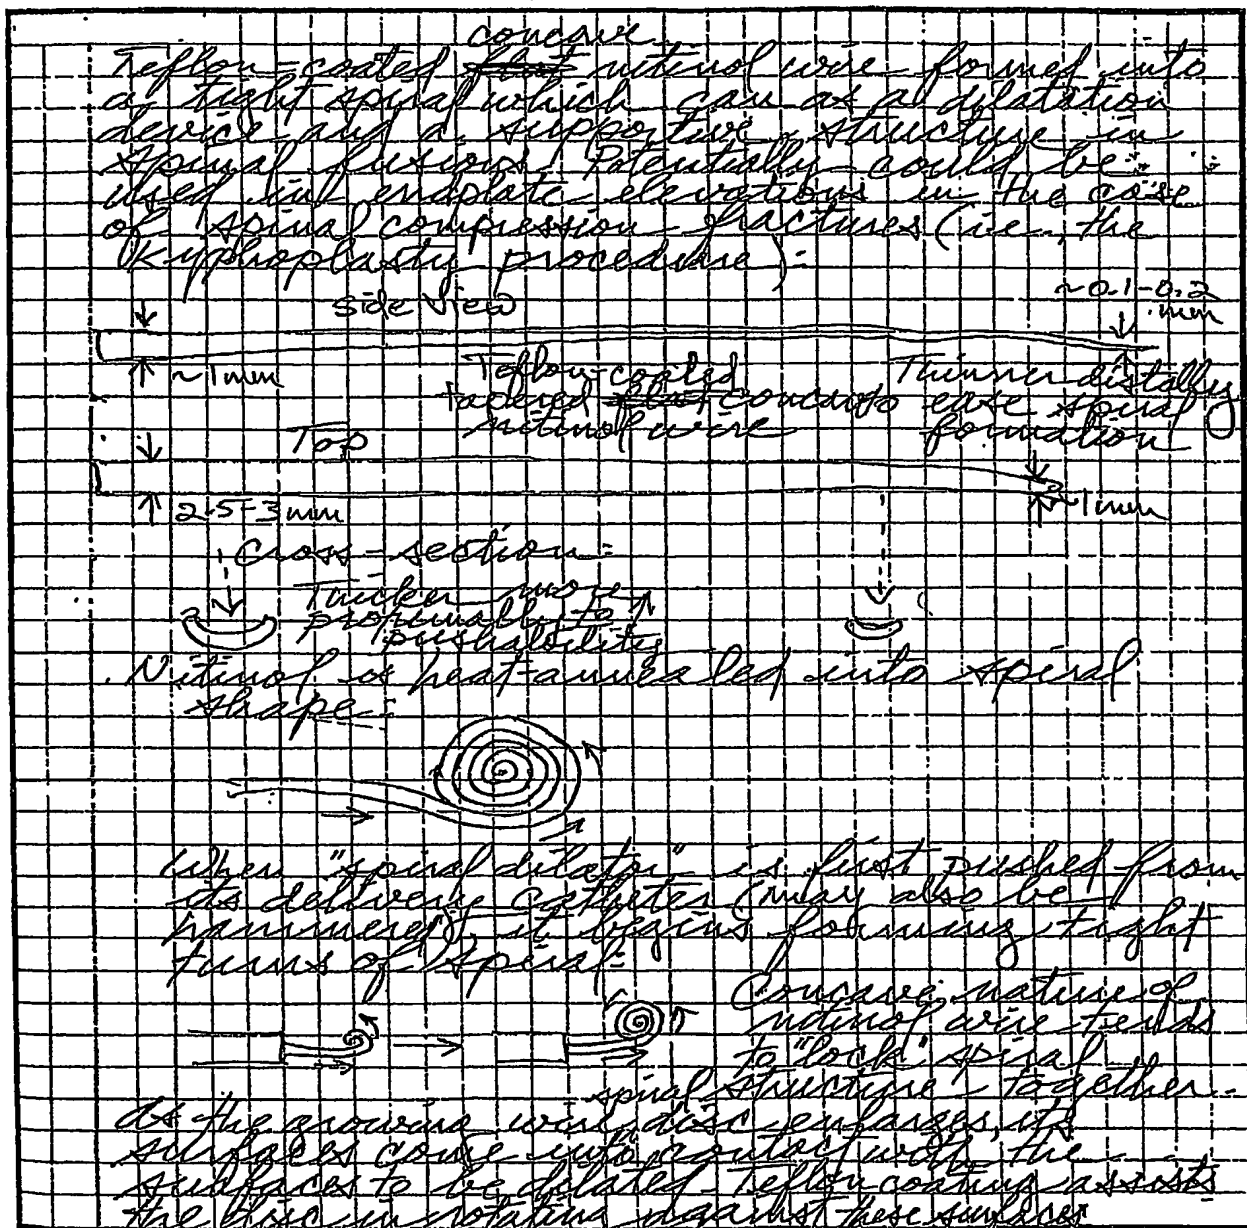 concave
Teflon-coated flat nitinol wire formed into
a tight spiral which can as a dilatation
device and a supportive structure in
spinal fusions. Potentially could be
used in endplate elevations in the case
of spinal compression fractures (i.e., the
Kyphoplasty procedure):
side view
~0.1-0.2
mm
~1mm
Teflon-coated
tapered flat concave
nitinol wire
Thinner distally
to ease spiral
formation
Top
2.5-3mm
~1mm
Cross-section:
Thicker more
proximally to ↑
pushability
Nitinol is heat-annealed into spiral
shape:
When "spiral dilator" is first pushed from
its delivery catheter (may also be
hammered), it begins forming tight
turns of spiral:
Concave nature of
nitinol wire tends
to "lock" spiral
structure together.
spiral
As the growing wire disc enlarges, its
surfaces come into contact with the
surfaces to be dilated. Teflon coating assists
the disc in rotating against these surfaces